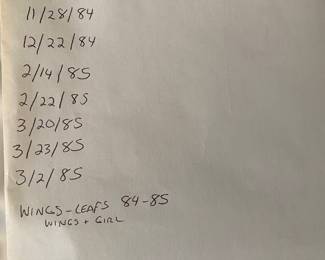 11/28/84
12/22/84
2/14/85
2/22/85
3/20/85
3/23/85
3/2/85
WINGS-LEAFS 84-85
WINGS + GIRL